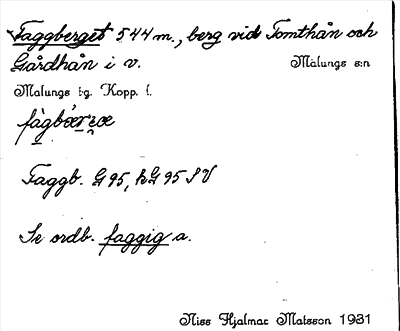 Faggberget 544 m., berg vid Tomthån och
Gårdhån i v. Malungs s:n
Malungs t:g. Kopp. l.
fàgbǽrɪæ
Faggb. G 95, hG 95 S V
Se ordb. faggig a.
Nils Hjalmar Matsson 1931